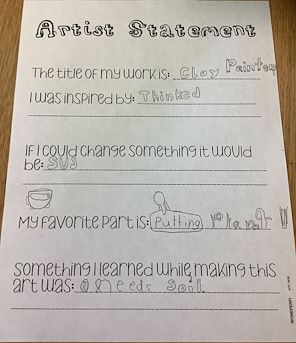 Artist Statement
The title of my work is: Clay Painter
I was inspired by: Thinked
If I could change something it would
be: SUS
My favorite part is: Putting Plant
Something I learned while making this
art was: needs Soil